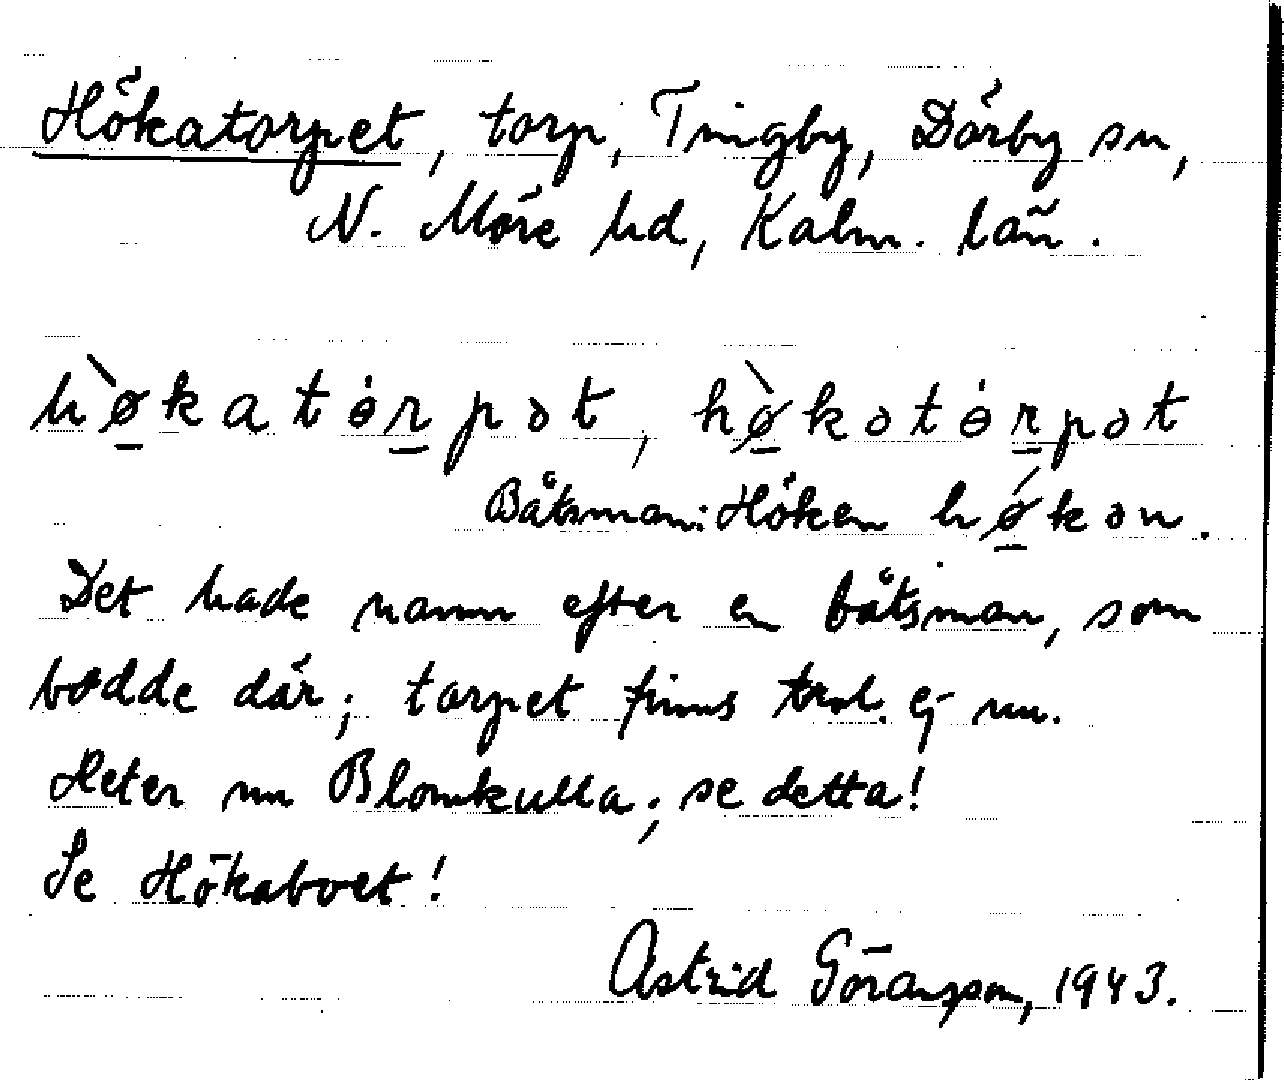 Hökatorpet, torp, Tingby, Dörby sn,
N. Möre hd, Kalm. län.
hø̀katȯrpət, hø̀kətȯrpət
Båtsman: Höken hǿkən.
Det hade namn efter en båtsman, som
bodde där; torpet finns trol. ej nu.
Heter nu Blomkulla; se detta!
Se Hökaboet!
Astrid Göransson, 1943.